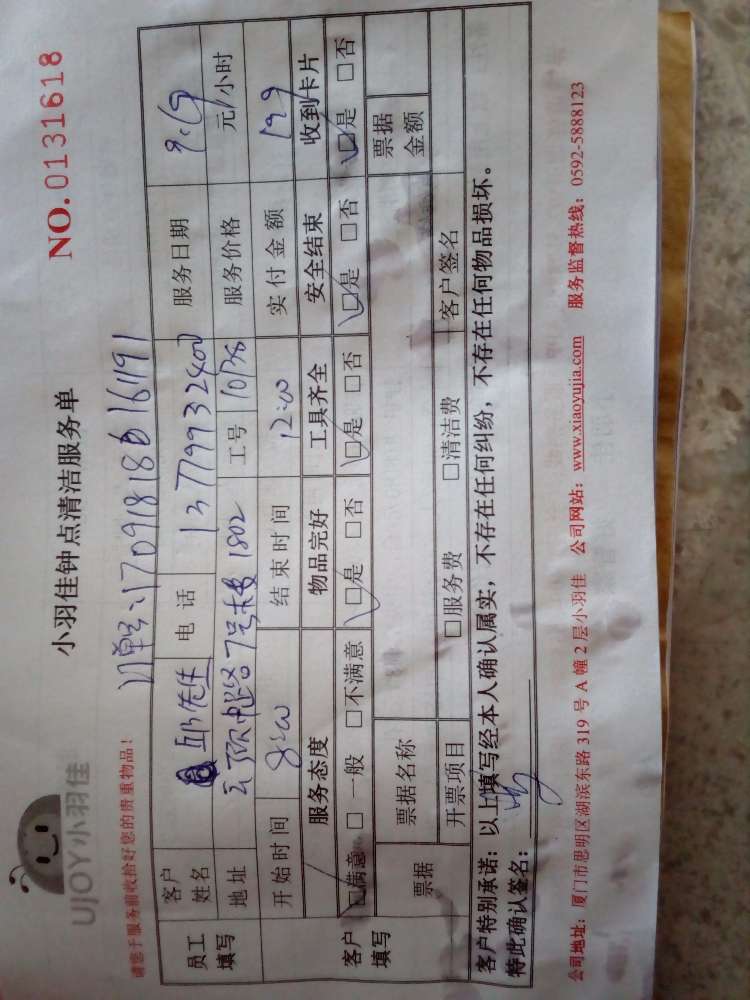 UJOY小羽佳
小羽佳钟点清洁服务单
NO.0131618
请您于服务前收拾好您的贵重物品!
订单号:170918186161191
员工填写
客户姓名 邱先生 电话 13779932400 服务日期 9.19
地址 云顶中路7号 1802 工号 10136 服务价格 元/小时
开始时间 8:00 结束时间 12:00 实付金额 199
客户填写
服务态度 物品完好 工具齐全 安全结束 收到卡片
□满意 □一般 □不满意 □是 □否 □是 □否 □是 □否 □是 □否
票据 票据名称 票据金额
开票项目 □服务费 □清洁费 客户签名
客户特别承诺:以上填写经本人确认属实,不存在任何纠纷,不存在任何物品损坏。
特此确认签名:
公司地址:厦门市思明区湖滨东路319号A幢2层小羽佳 公司网站:www.xiaoyujia.com 服务监督热线:0592-5888123